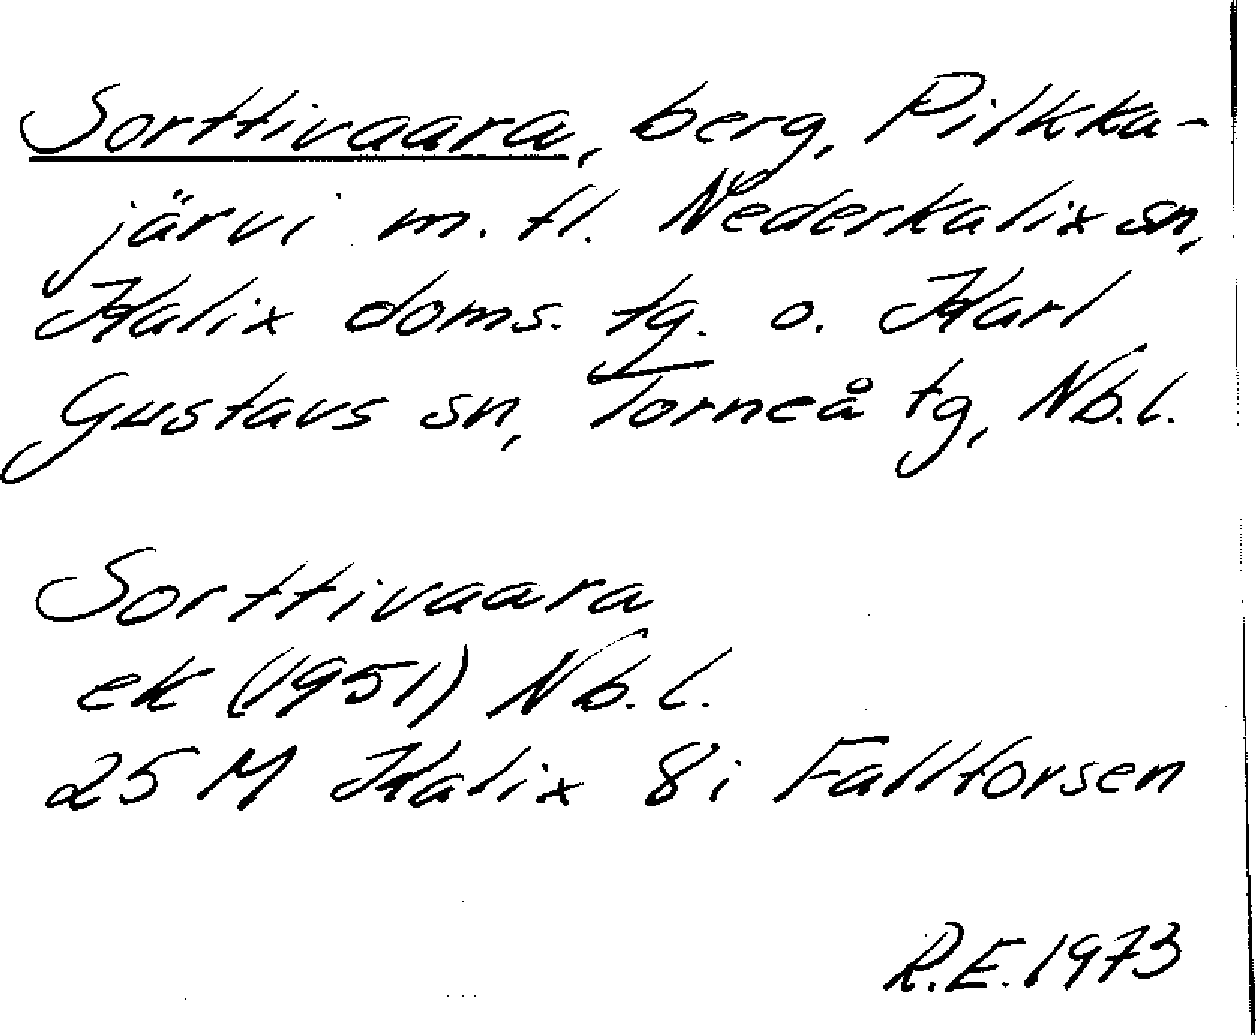 Sorttivaara, berg, Pilkka-
järvi m. fl. Nederkalix sn,
Kalix doms. tg. o. Karl
Gustavs sn, Torneå tg, Nb.l.
Sorttivaara
ek (1951) Nb.l.
25 M Kalix 8i Fallforsen
R.E. 1973